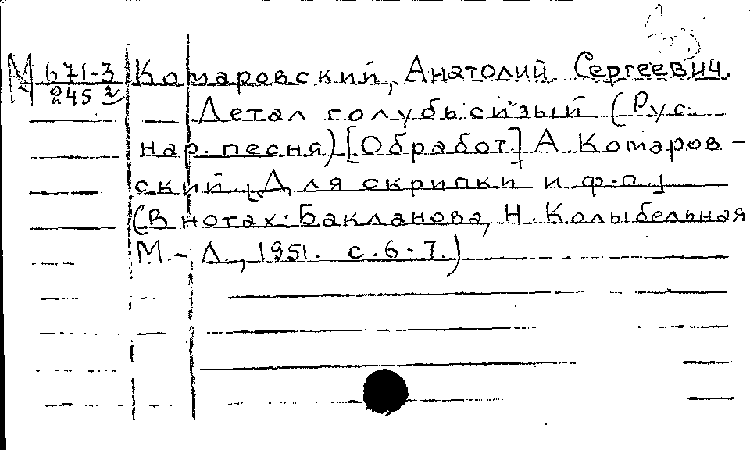 М 671-3 Комаровский, Анатолий Сергеевич.
245 Летал голубь сизый (Рус.
нар. песня) [Обработ.] А. Комаров-
ский [Для скрипки и ф.-п.]
(В нотах: Бакланова, Н. Колыбельная
М.-Л., 1951. с. 6-7.)